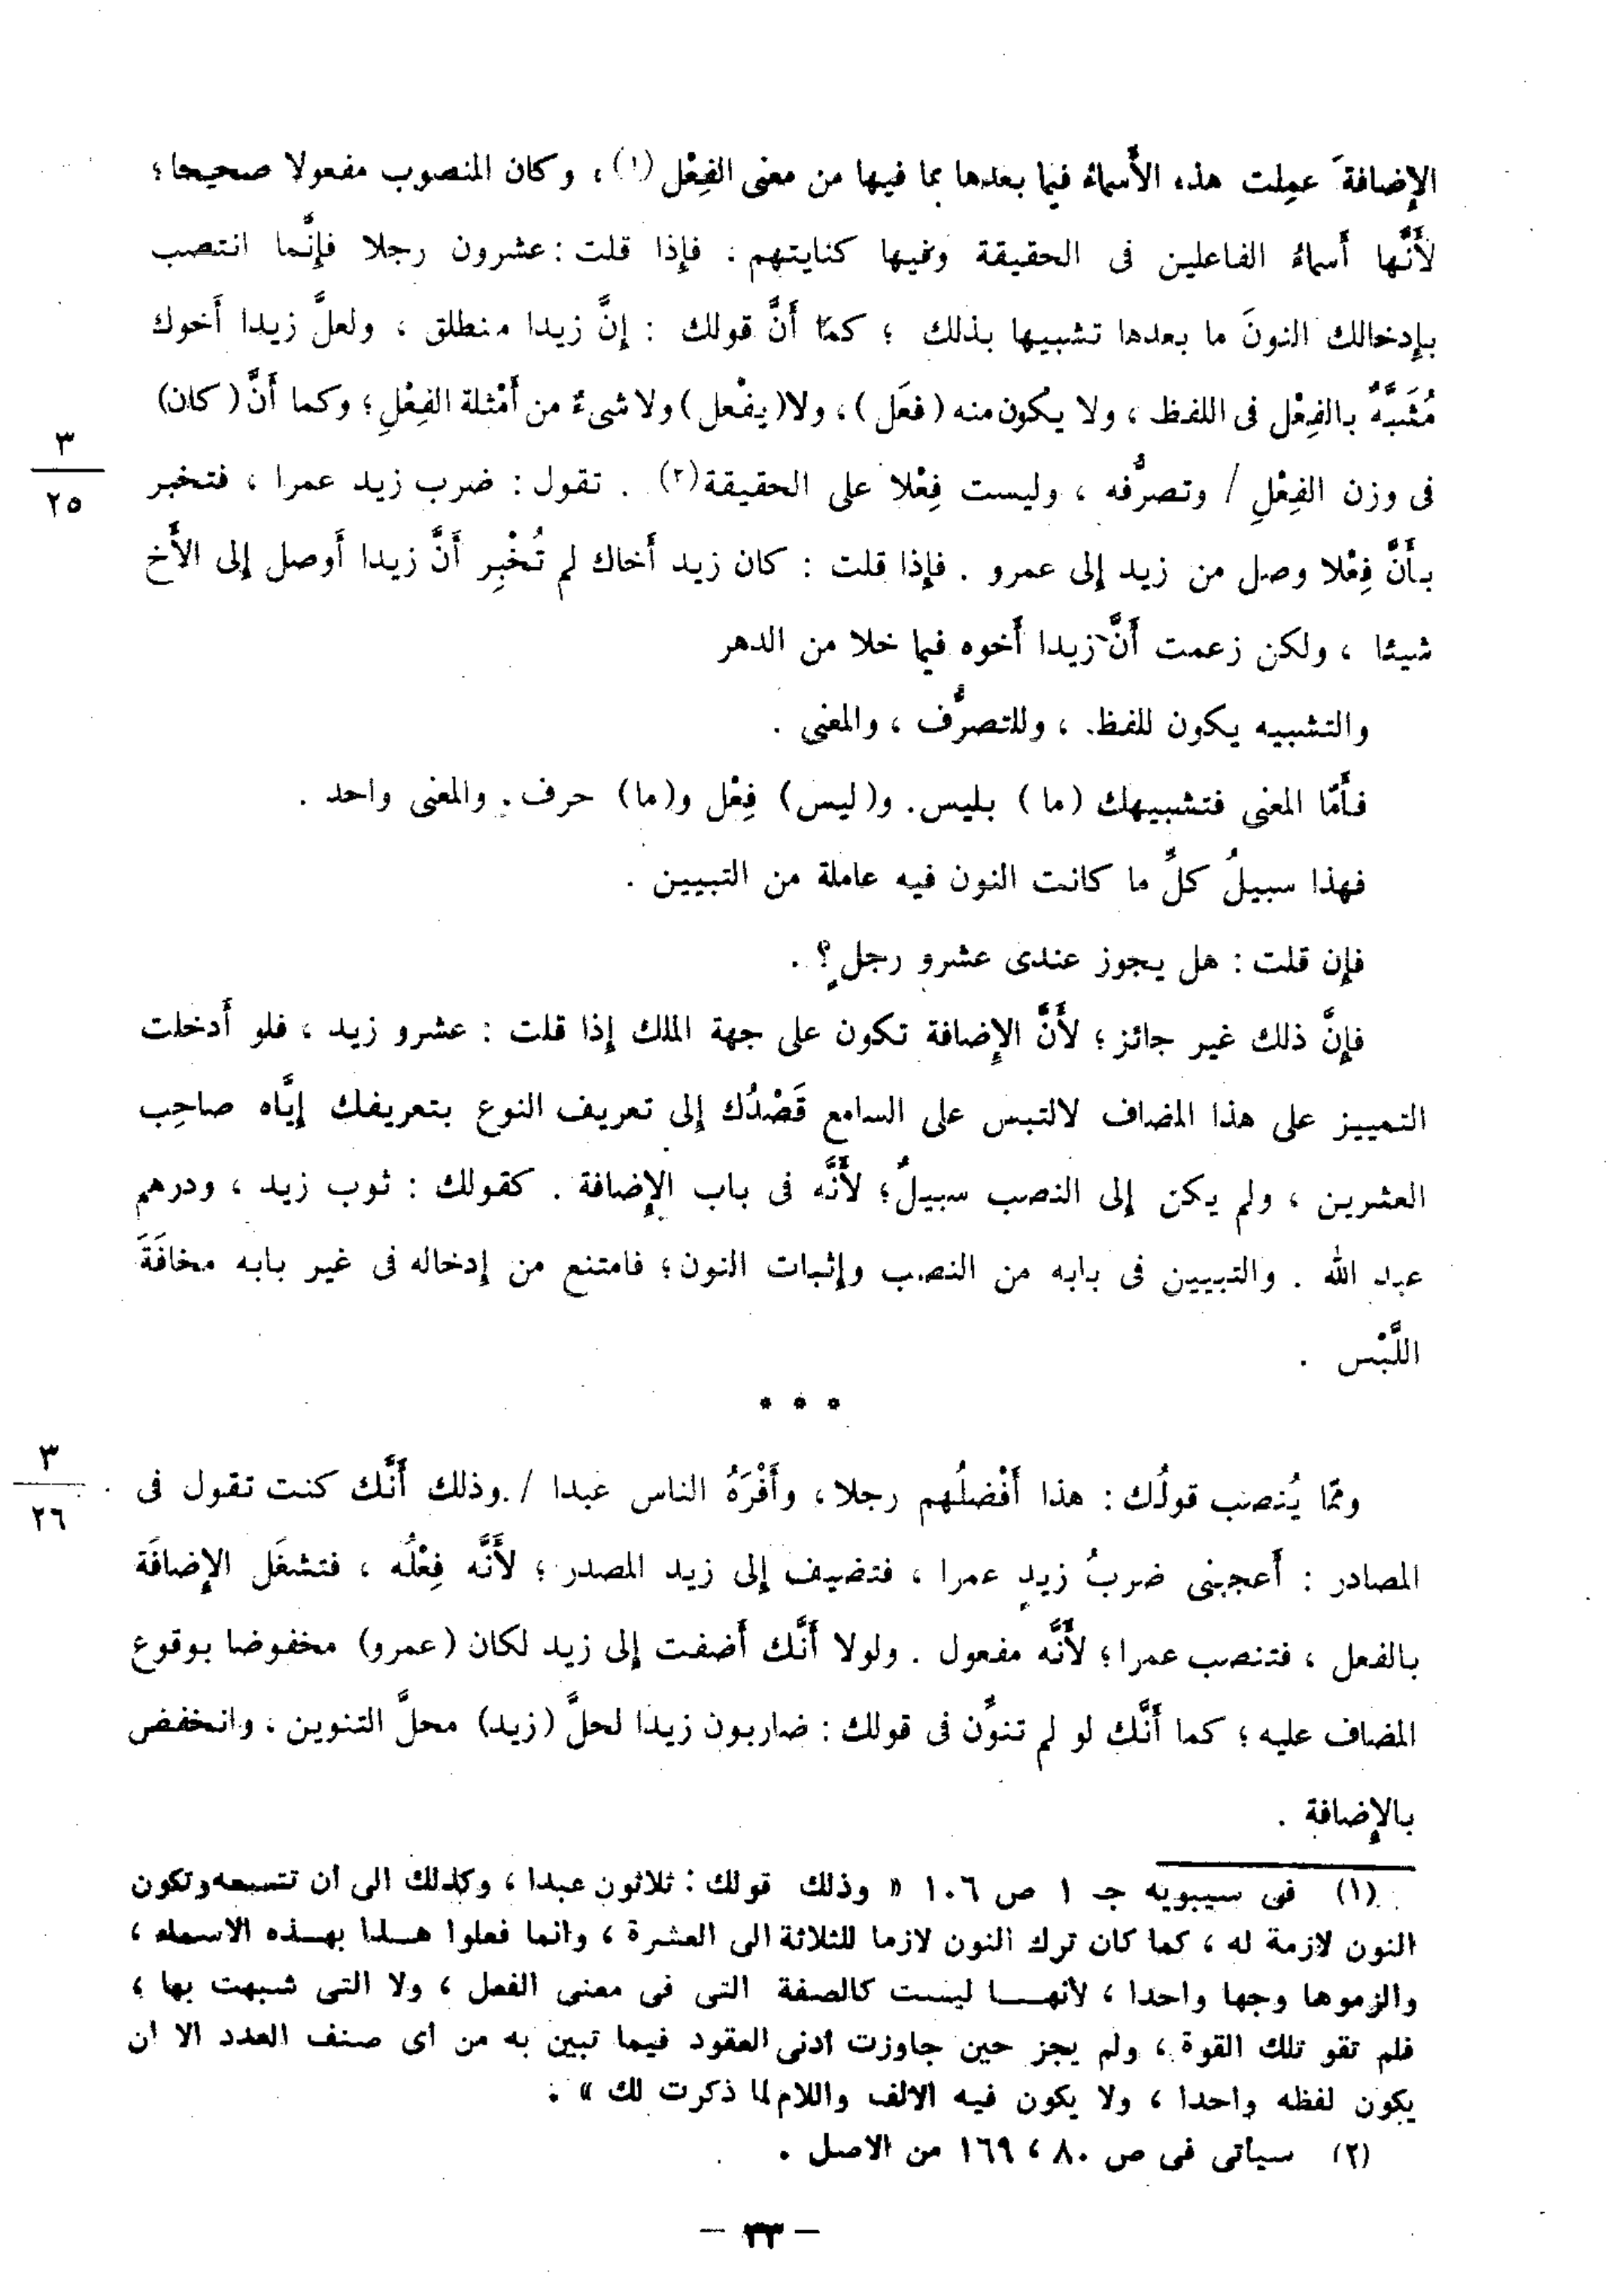 الإِضافةَ عمِلت هذه الأَسماءُ فيما بعدها بما فيها من معنى الفِعْل (١) ، وكان المنصوب مفعولا صحيحا ؛
لأَنَّها أَسماءُ الفاعلين فى الحقيقة وفيها كنايتهم . فإِذا قلت : عشرون رجلا فإِنَّما انتصب
بإِدخالك النونَ ما بعدها تشبيها بذلك ؛ كما أَنَّ قولك : إِنَّ زيدا منطلق ، ولعلَّ زيدا أَخوك
مُشَبَّهٌ بالفِعْل فى اللفظ ، ولا يكون منه (فعَل) ، ولا (يفْعل) ولا شىءٌ من أَمْثلة الفِعْلِ ؛ وكما أَنَّ (كان)
٣
٢٥
فى وزن الفِعْلِ / وتصرُّفه ، وليست فِعْلا على الحقيقة (٢) . تقول : ضرب زيد عمرا ، فتخبر
بأَنَّ فِعْلا وصل من زيد إِلى عمرو . فإِذا قلت : كان زيد أَخاك لم تُخْبِر أَنَّ زيدا أَوصل إِلى الأَخ
شيئا ، ولكن زعمت أَنَّ زيدا أَخوه فيما خلا من الدهر
والتشبيه يكون للفظ ، وللتصرُّف ، والمعنى .
فأَمّا المعنى فتشبيهك (ما) بليس . و(ليس) فِعْل و(ما) حرف . والمعنى واحد .
فهذا سبيلُ كلِّ ما كانت النون فيه عاملة من التبيين .
فإِن قلت : هل يجوز عندى عشرو رجلٍ ؟ .
فإِنَّ ذلك غير جائز ؛ لأَنَّ الإِضافة تكون على جهة الملك إِذا قلت : عشرو زيد ، فلو أَدخلت
التمييز على هذا المضاف لالتبس على السامع قَصْدُك إِلى تعريف النوع بتعريفك إِيَّاه صاحِب
العشرين ، ولم يكن إِلى النصب سبيلٌ ؛ لأَنَّه فى باب الإِضافة . كقولك : ثوب زيد ، ودرهم
عبد الله . والتبيين فى بابه من النصب وإِثبات النون ؛ فامتنع من إِدخاله فى غير بابه مخافَةَ
اللَّبْس .
* * *
٣
٢٦
وممّا يُنصب قولُك : هذا أَفْضلُهم رجلا ، وأَفْرَهُ الناس عبدا / . وذلك أَنَّك كنت تقول فى
المصادر : أَعجبنى ضربُ زيدٍ عمرا ، فتضيف إِلى زيد المصدر ؛ لأَنَّه فِعْلُه ، فتشغَل الإِضافَة
بالفعل ، فتنصب عمرا ؛ لأَنَّه مفعول . ولولا أَنَّك أَضفت إِلى زيد لكان (عمرو) مخفوضا بوقوع
المضاف عليه ؛ كما أَنَّك لو لم تنوِّن فى قولك : ضاربون زيدا لحلَّ (زيد) محلَّ التنوين ، وانخفض
بالإِضافة .
(١) فى سيبويه جـ ١ ص ١٠٦ « وذلك قولك : ثلاثون عبدا ، وكذلك الى أن تتسعه وتكون
النون لازمة له ، كما كان ترك النون لازما للثلاثة الى العشرة ، وانما فعلوا هـذا بهـذه الاسماء ،
والزموها وجها واحدا ، لأنهـا ليست كالصفة التى فى معنى الفعل ، ولا التى شبهت بها ،
فلم تقو تلك القوة ، ولم يجز حين جاوزت أدنى العقود فيما تبين به من أى صنف العدد الا أن
يكون لفظه واحدا ، ولا يكون فيه الالف واللام لما ذكرت لك » .
(٢) سيأتى فى ص ٨٠ ، ١٦٩ من الاصل .
– ٣٣ –